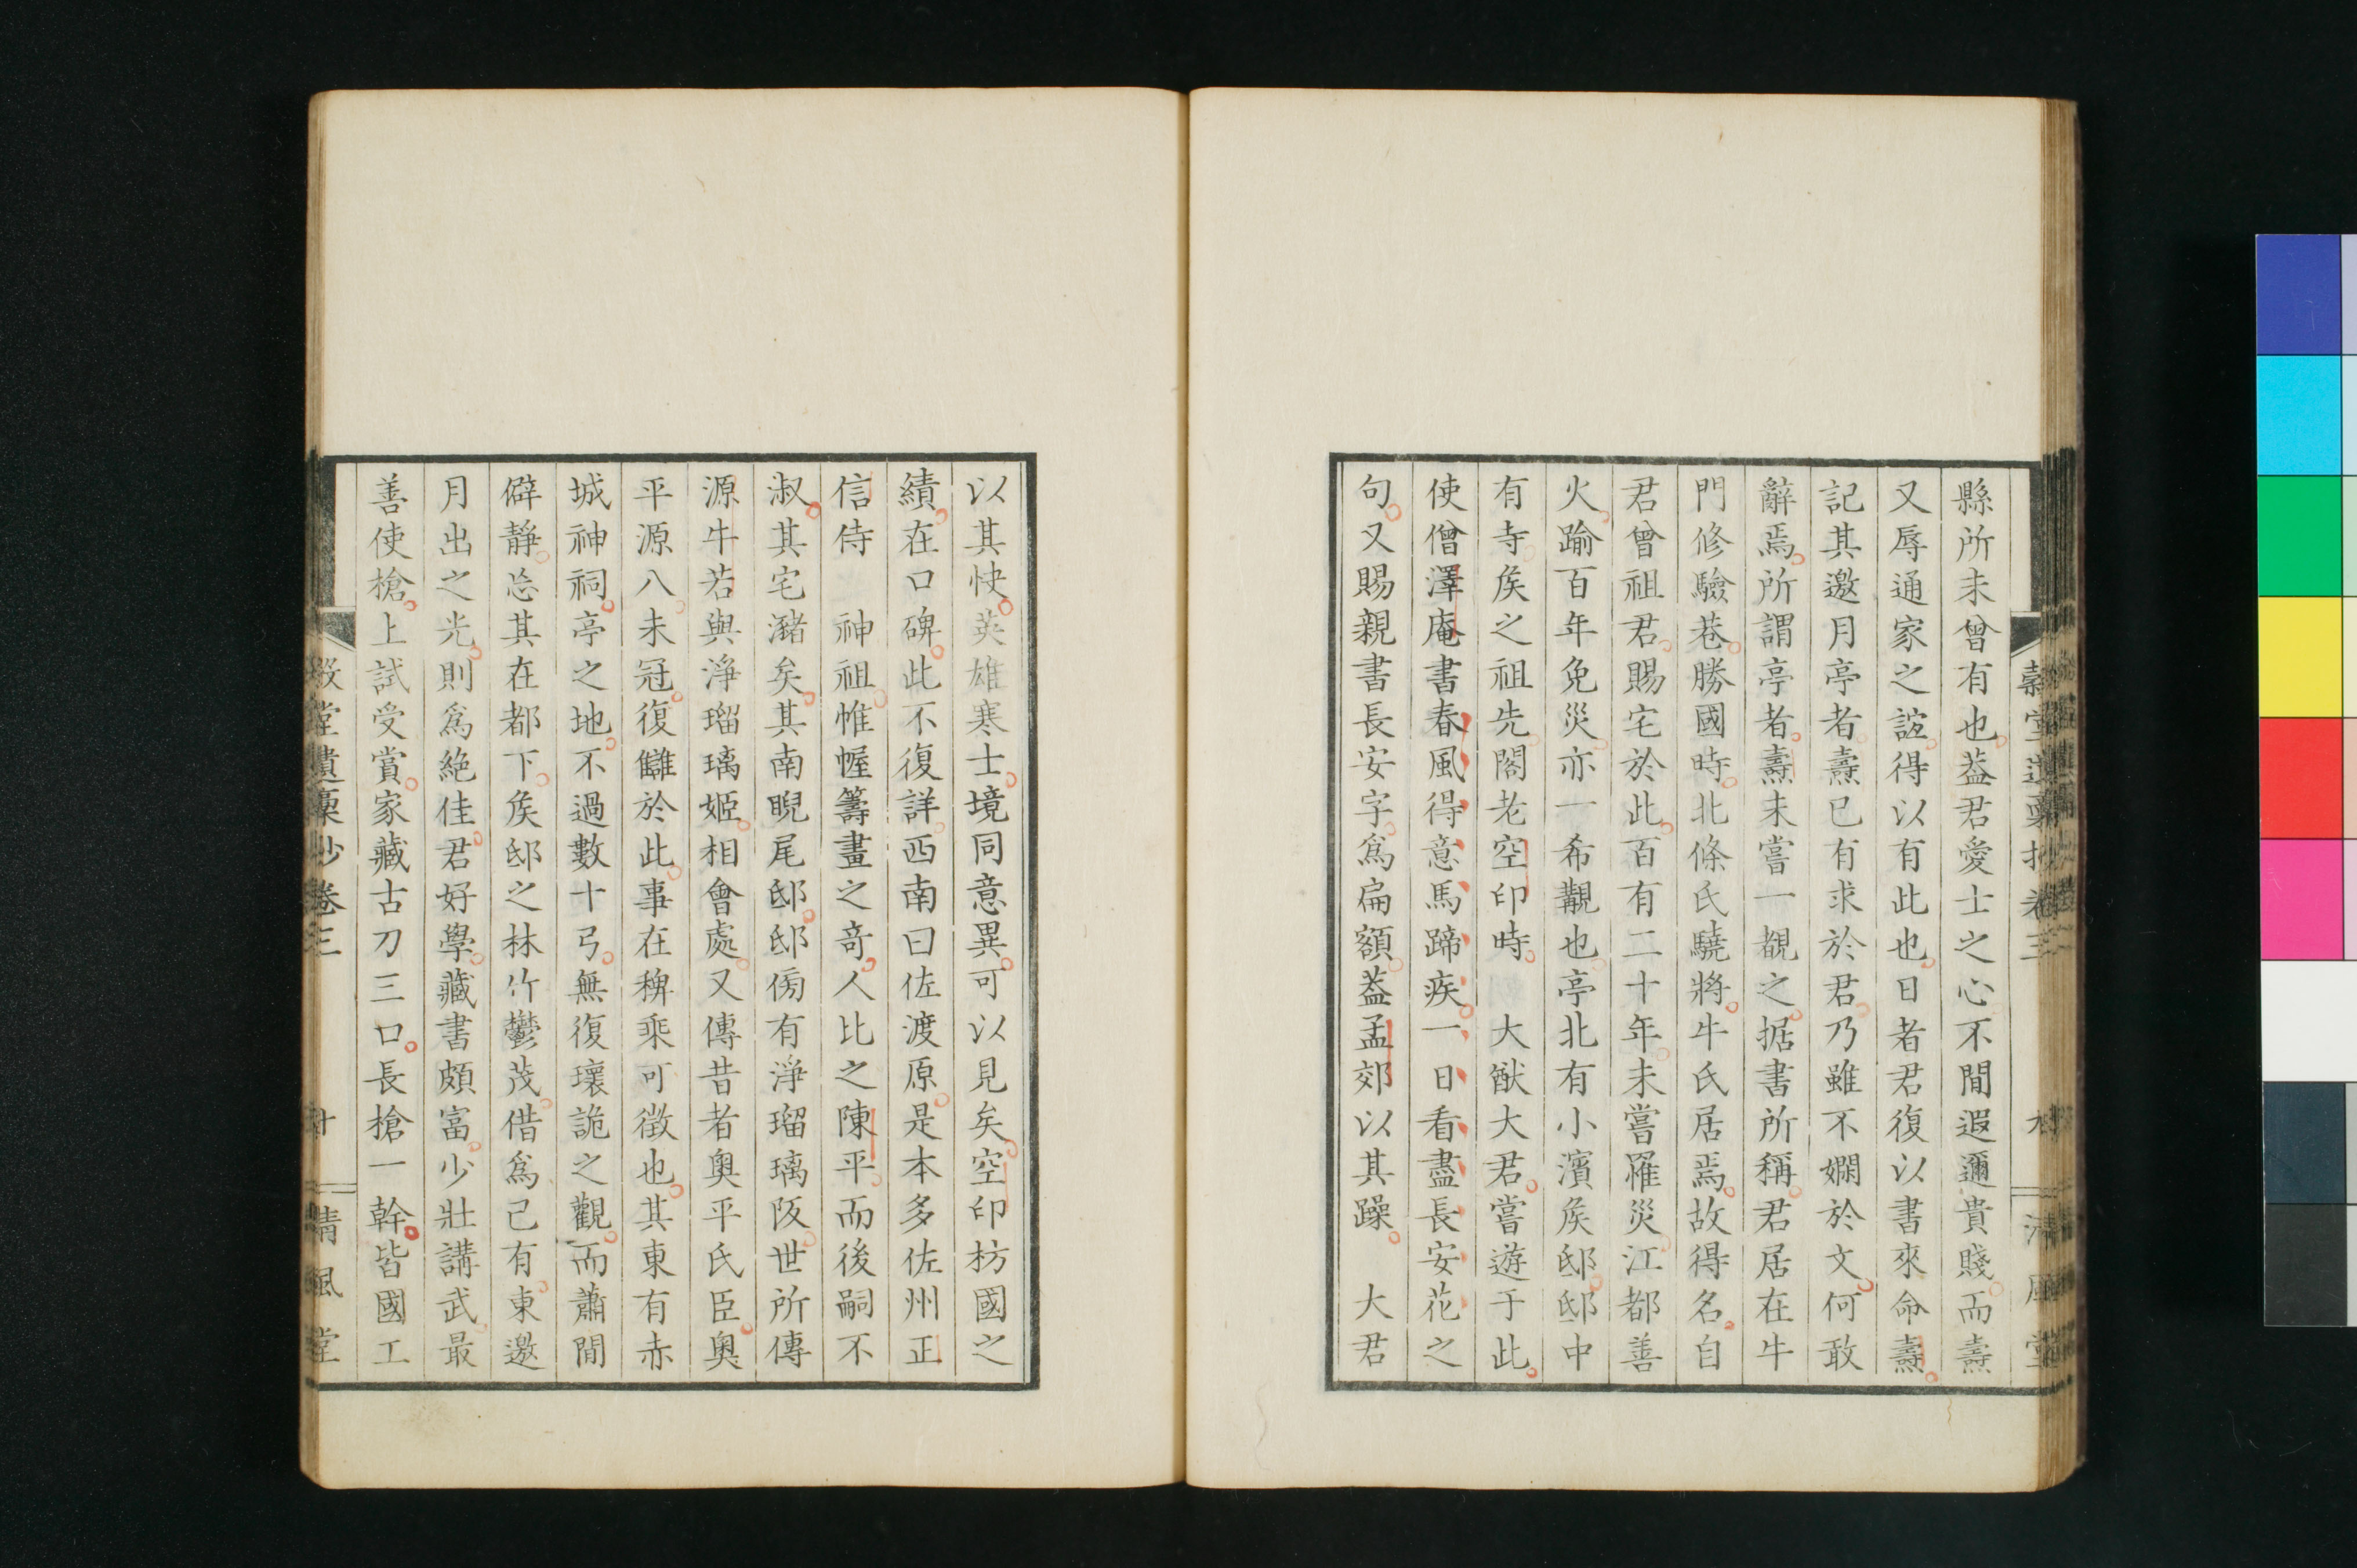 縣所未曾有也葢君愛士之心不間遐邇貴賤而燾
又辱通家之誼得以有此也日者君復以書來命燾
記其邀月亭者燾已有求於君乃雖不嫻於文何敢
辭焉所謂亭者燾未嘗一覩之据書所稱君居在牛
門修驗巷勝國時北條氏驍將牛氏居焉故得名自
君曾祖君賜宅於此百有二十年未嘗罹災江都善
火踰百年免災亦一希覯也亭北有小濱矦邸邸中
有寺矦之祖先閣老空印時 大猷大君嘗遊于此
使僧澤庵書春風得意馬蹄疾一日看盡長安花之
句又賜親書長安字爲扁額葢孟郊以其躁 大君
以其快英雄寒士境同意異可以見矣空印枋國之
績在口碑此不復詳西南曰佐渡原是本多佐州正
信侍 神祖帷幄籌畫之奇人比之陳平而後嗣不
淑其宅瀦矣其南睨尾邸邸傍有淨瑠璃阪世所傳
源牛若與淨瑠璃姬相會處又傳昔者奧平氏臣奧
平源八未冠復讎於此事在稗乘可徵也其東有赤
城神祠亭之地不過數十弓無復瓌詭之觀而蕭閒
僻靜忘其在都下矦邸之林竹鬱茂借爲己有東邀
月出之光則爲絶佳君好學藏書頗富少壯講武最
善使槍上試受賞家藏古刀三口長槍一幹皆國工
堂遺稾抄卷三
十
晴風堂